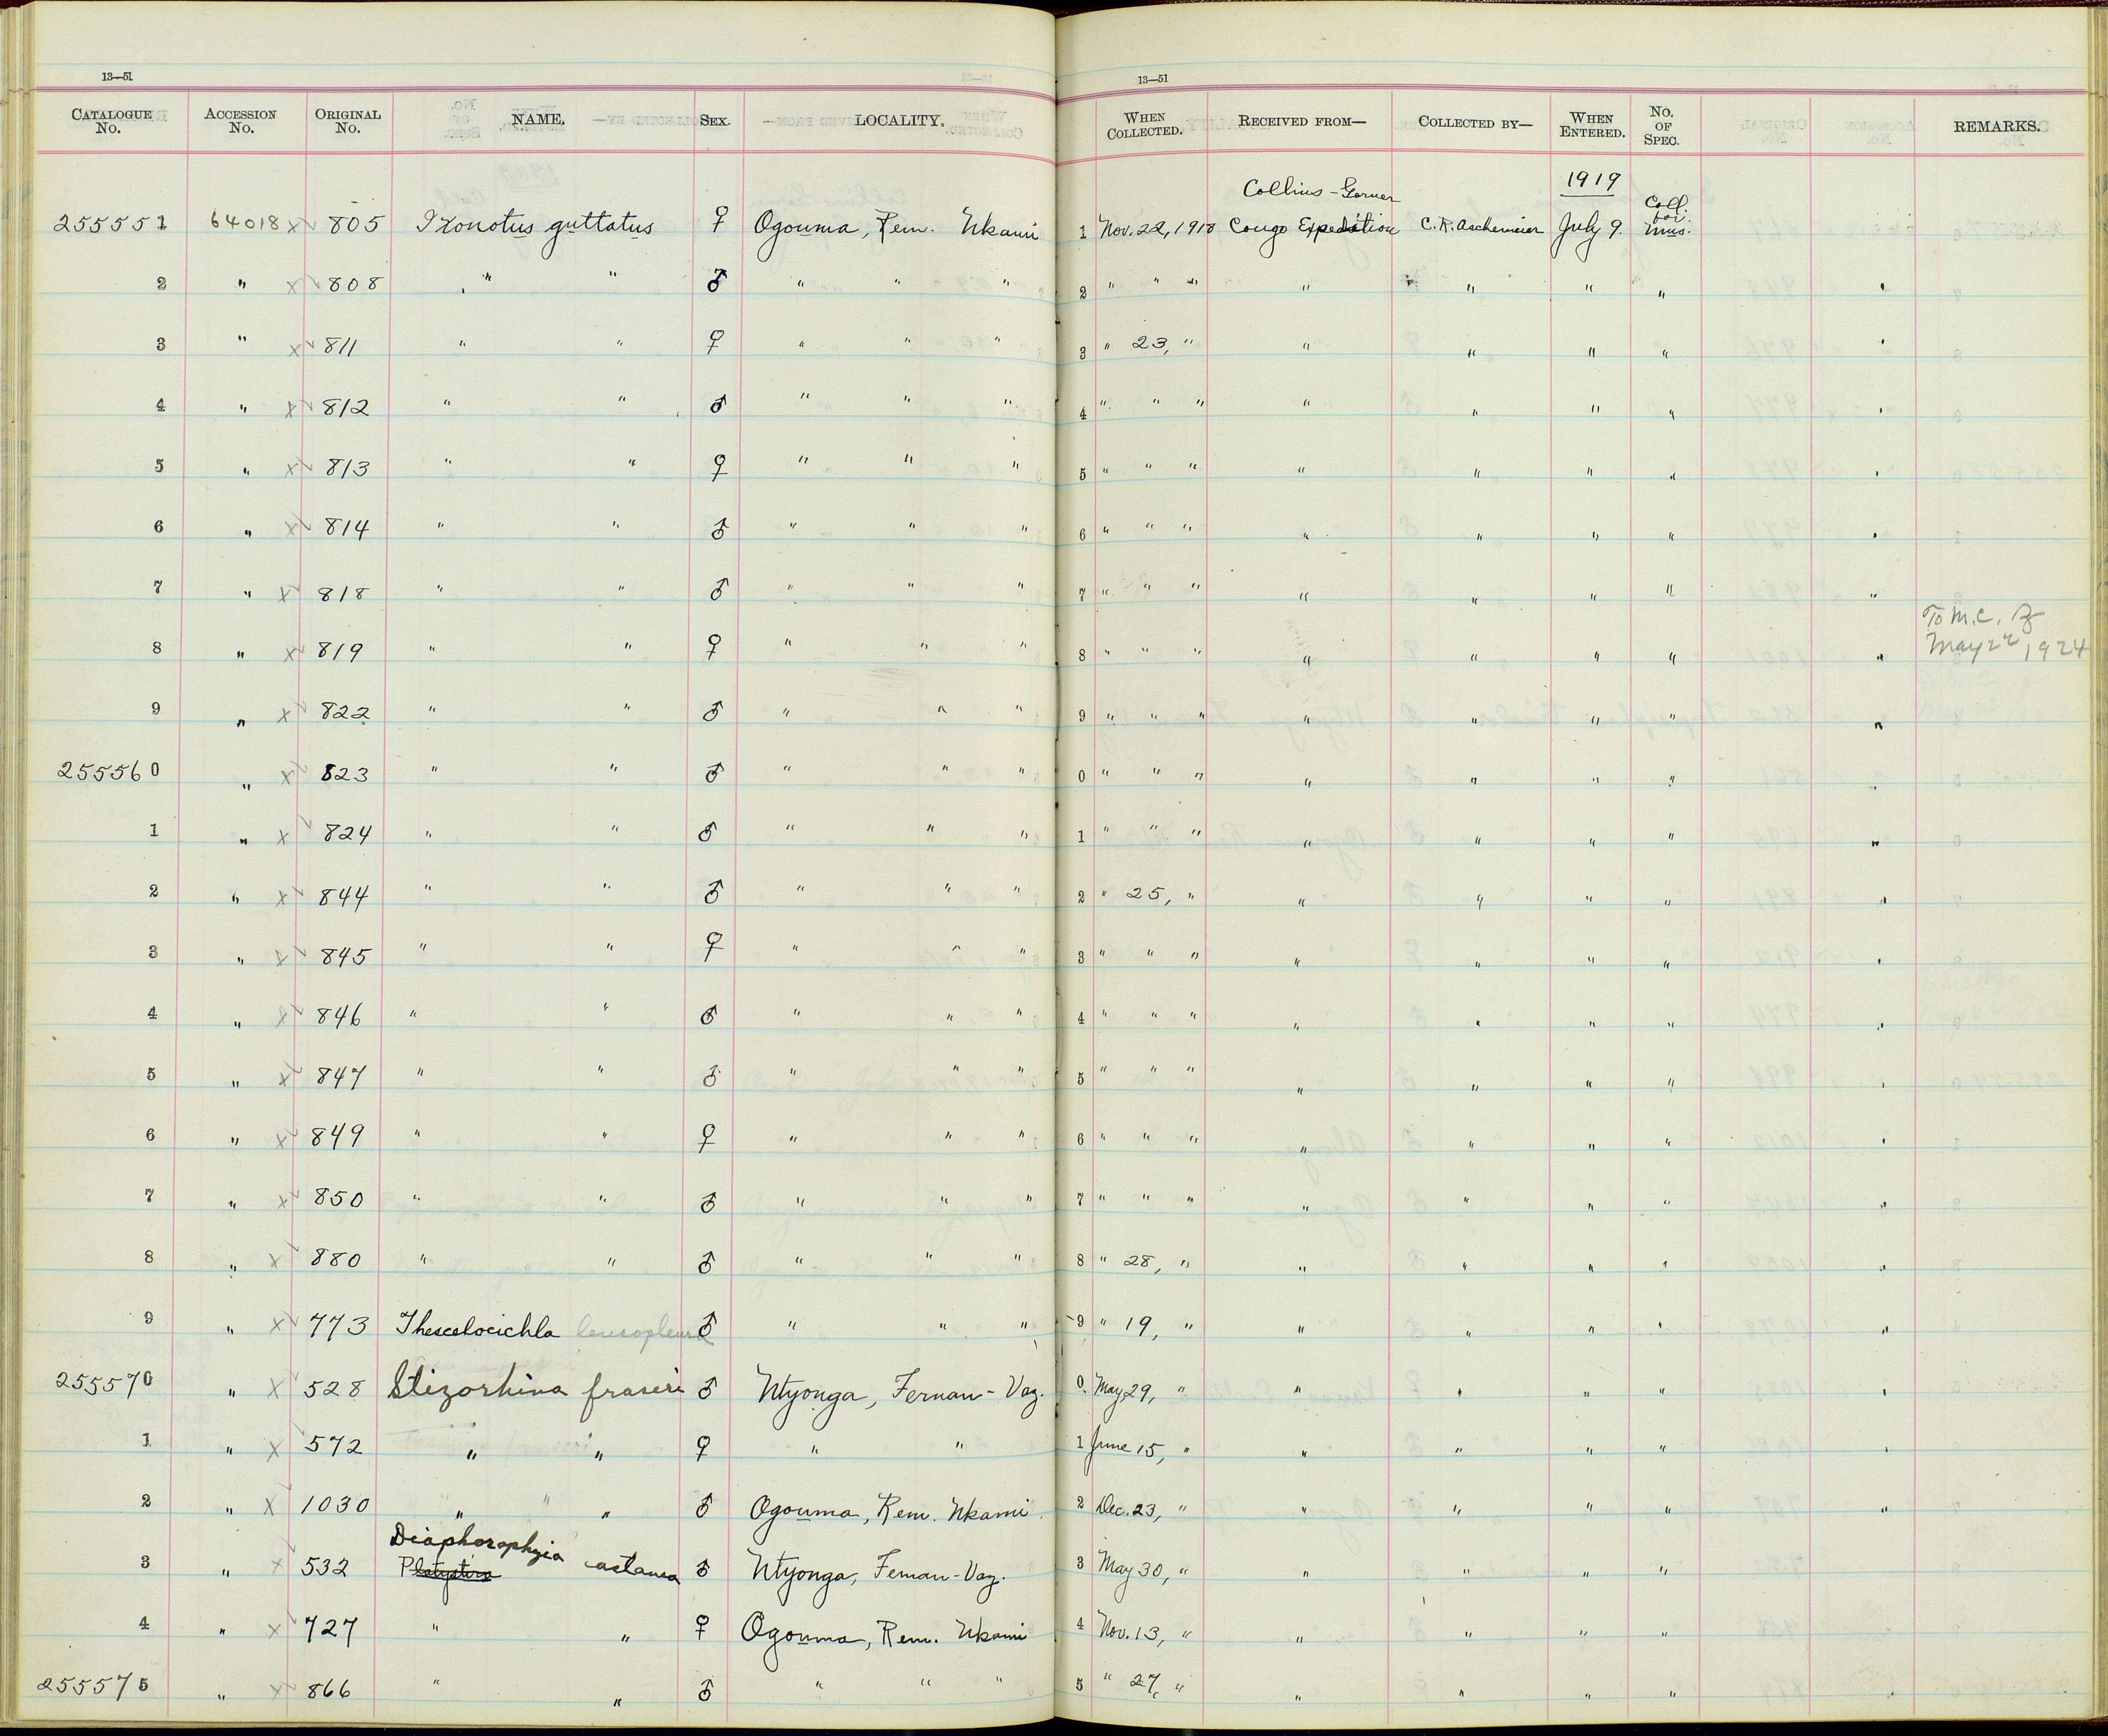 13—51 13—51
CATALOGUE No. ACCESSION No. ORIGINAL No. NAME. SEX. LOCALITY. WHEN COLLECTED. RECEIVED FROM— COLLECTED BY— WHEN ENTERED. No. OF SPEC. REMARKS.
Collins - Garner 1919 Coll. for.
255551 64018 x ✓ 805 Ixonotus guttatus ♀ Ogouma, Rem. Nkami 1 Nov. 22, 1918 Congo Expedition C. R. Aschemeier July 9. Mus.
2 " x ✓ 808 " " ♂ " " " 2 " " " " " " " "
3 " x ✓ 811 " " ♀ " " " 3 " 23, " " " " " "
4 " x ✓ 812 " " ♂ " " " 4 " " " " " " " "
5 " x ✓ 813 " " ♀ " " " 5 " " " " " " " "
6 " x ✓ 814 " " ♂ " " " 6 " " " " " " " "
7 " x ✓ 818 " " ♂ " " " 7 " " " " " " " "
To M.C.Z
8 " x ✓ 819 " " ♀ " " " 8 " " " " " " " " May 22 1924
9 " x ✓ 822 " " ♂ " " " 9 " " " " " " " "
255560 " x ✓ 823 " " ♂ " " " 0 " " " " " " " "
1 " x ✓ 824 " " ♂ " " " 1 " " " " " " " "
2 " x ✓ 844 " " ♂ " " " 2 " 25, " " " " " "
3 " x ✓ 845 " " ♀ " " " 3 " " " " " " " "
4 " x ✓ 846 " " ♂ " " " 4 " " " " " " " "
5 " x ✓ 847 " " ♂ " " " 5 " " " " " " " "
6 " x ✓ 849 " " ♀ " " " 6 " " " " " " " "
7 " x ✓ 850 " " ♂ " " " 7 " " " " " " " "
8 " x ✓ 880 " " ♂ " " " 8 " 28, " " " " " "
9 " x ✓ 773 Thescelocichla leucopleura ♂ " " " 9 " 19, " " " " " "
255570 " x ✓ 528 Stizorhina fraseri ♂ Ntyonga, Fernan-Vaz. 0 May 29, " " " " " "
1 " x ✓ 572 " " ♀ " " 1 June 15, " " " " " "
2 " x ✓ 1030 " " ♂ Ogouma, Rem. Nkami. 2 Dec. 23, " " " " " "
Diaphorophyia
3 " x 532 Platystira castanea ♂ Ntyonga, Fernan-Vaz. 3 May 30, " " " " "
4 " x ✓ 727 " " ♀ Ogouma, Rem. Nkami 4 Nov. 13, " " " " "
255575 " x ✓ 866 " " ♂ " " " 5 " 27, " " " " "